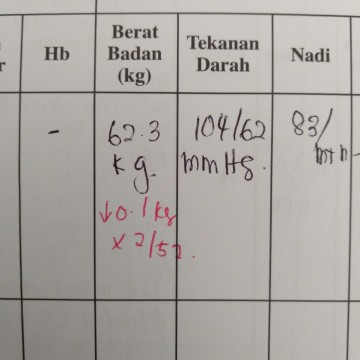 r Hb Berat Badan (kg) Tekanan Darah Nadi
- 62.3 104/62 83/
kg. mmHg. min
↓0.1kg
x 2/52.